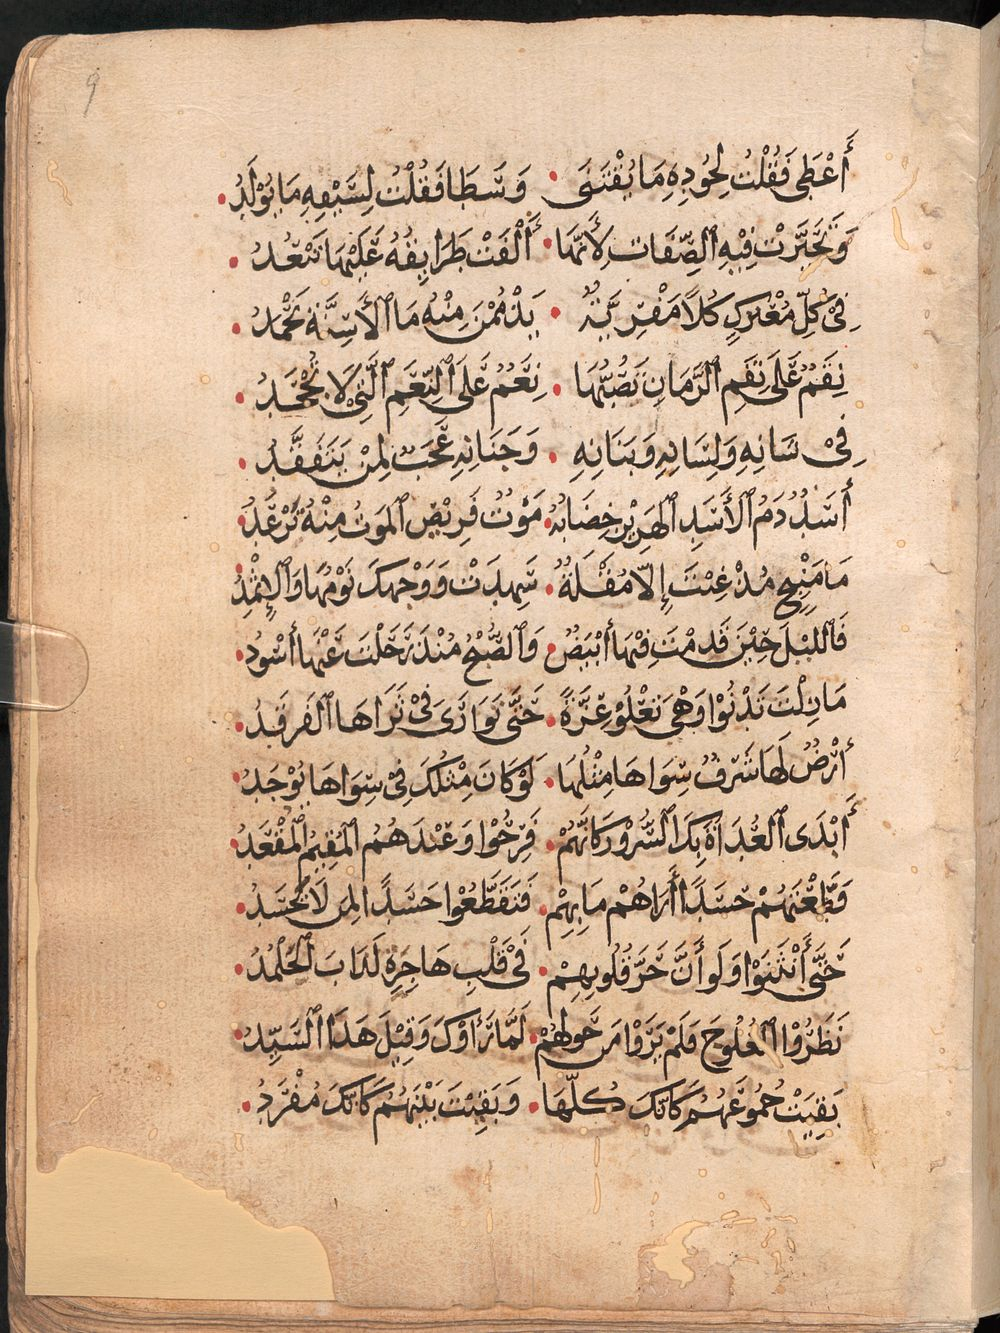 9
أَعْطَى فَقُلْتُ لِجُودِهِ مَا يُقْتَنَى • وَسَطَا فَقُلْتُ لِسَيْفِهِ مَا يُوْلَدُ •
وَتَحَيَّرَتْ فِيْهِ ٱلصِّفَاتُ لِأَنَّهَا • أَلْفَتْ طَرَايِقُهُ عَلَيْهَا تَبْعُدُ •
فِيْ كُلِّ مُعْتَرَكٍ كُلًا مَفْرِيَّةٌ • يَذْمُمْنَ مِنْهُ مَا ٱلْأَسِنَّةُ تَحْمَدُ •
نِقَمٌ عَلَى نِقَمِ ٱلزَّمَانِ تَصُبُّهَا • نِعَمٌ عَلَى ٱلنِّعَمِ ٱلَّتِيْ لَا تُجْحَدُ •
فِيْ شَانِهِ وَلِسَانِهِ وَبَنَانِهِ • وَجَنَانِهِ عَجَبٌ لِمَنْ يَتَفَقَّدُ •
أَسَدٌ دَمُ ٱلْأَسَدِ ٱلهِزَبْرِ خِضَابُهُ • مَوْتٌ فَرِيْصُ ٱلمَوْتِ مِنْهُ تُرْعَدُ •
مَا مَنْبِجٌ مُذْ غِبْتَ إِلَّا مُقْلَةٌ • سَهِدَتْ وَوَجْهُكَ نَوْمُهَا وَٱلْإِثْمِدُ •
فَٱللَيْلُ حِيْنَ قَدِمْتَ فِيْهَا أَبْيَضٌ • وَٱلصُّبْحُ مُنْذُ رَحَلْتَ عَنْهَا أَسْوَدُ •
مَا زِلْتَ تَدْنُوْا وَهْيَ تَعْلُوْ عِزَّةً • حَتَّى تَوَارَىَ فِيْ ثَرَاهَا ٱلفَرقَدُ •
أَرْضٌ لَهَا شَرَفٌ سِوَاهَا مِثْلُهَا • لَوْ كَانَ مِثْلُكَ فِيْ سِوَاهَا يُوْجَدُ •
أَبْدَى ٱلعُدَاةُ بِكَ ٱلسُّرُوْرَ كَانَّهُمْ • فَرِحُوْا وَعِنْدَهُمُ ٱلمُقِيْمُ ٱلْمُقْعَدُ •
قَطَّعْتَهُمْ حَسَدًا أَرَاهُمْ مَا بِهِمْ • فَتَقَطَّعُوْا حَسَدًا لِمَنْ لَا يَحْسَدُ •
حَتَّى أَنْثَنَوْا وَلَو أَنَّ حَرَّ قُلُوبِهِمْ • فِيْ قَلْبِ هَاجِرَةٍ لَذَابَ ٱلجَلْمَدُ •
نَظَرُوْا ٱلعُلُوجَ فَلَمْ يَرَوْا مَن حَولَهُمْ • لَمَّا رَأَوْكَ وَقِيْلَ هَذَا ٱلسَّيِّدُ •
بَقِيَتْ جُمُوْعُهُمُ كَانَكَ كُلُّهَا • وَبَقِيْتَ بَيْنَهُمُ كَانَكَ مُفْرَدُ •